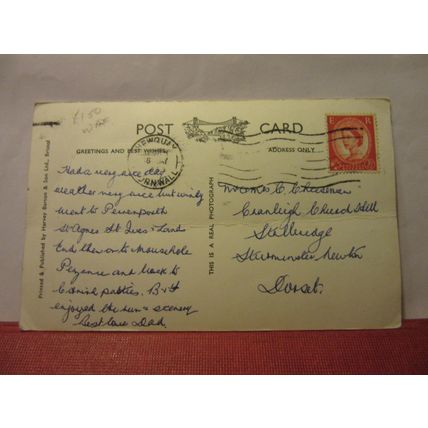 £1.50
POST CARD
GREETINGS AND BEST WISHES
ADDRESS ONLY
NEWQUAY
CORNWALL
E R
Printed & Published by Harvey Barton & Son Ltd., Bristol
THIS IS A REAL PHOTOGRAPH
Had a very nice day
weather very nice but windy
went to Perranporth
St Agnes St Ives & Lands
End then on to Mousehole
Penzance and back to
Cornish pasties. B
enjoyed the sun & scenery
Best love Dad.
Mr & Mrs C
Cranleigh Church Hill
Stalbridge
Sturminster Newton
Dorset.